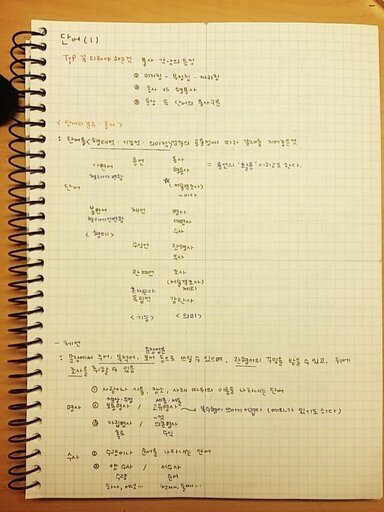 단어 (1)
Tip 꼭 외워야 하는것 품사 각각의 특징
① 이지칭 - 부정칭 - 재귀칭
② 동사 vs 형용사
③ 문장 속 단어의 품사구분
< 단어의 분류 : 품사 >
: 단어를 (형태적 · 기능적 · 의미적) 성질의 공통성에 따라 갈래를 지어놓은것
가변어 용언 동사
형태가변함 형용사 = 용언의 '활용' 이라고도 한다.
단어 (서술격조사)
~이다
불변어 체언 명사
형태가안변함 대명사
<형태> 수사
수식언 관형사
부사
관계언 조사
(서술격조사)
독립언 감탄사
<기능> <의미>
- 체언
문장성분
: 문장에서 주어, 목적어, 보어 등으로 쓰일 수 있으며, 관형어의 수입을 받을 수 있고, 뒤에
조사를 취할 수 있음
① 사람이나 사물, 장소, 사태 따위의 이름을 나타내는 단어
명사 ② 보통명사 / 고유명사 → 복수형이 쓰이기 어렵다 (예외가 있기도 하다)
~것
③ 자립명사 / 의존명사
홀로 수식
수사 ① 수량이나 순서를 나타내는 단어
② 양수사 / 서수사
수량 순서
하나, 여섯... 첫째, 둘째...